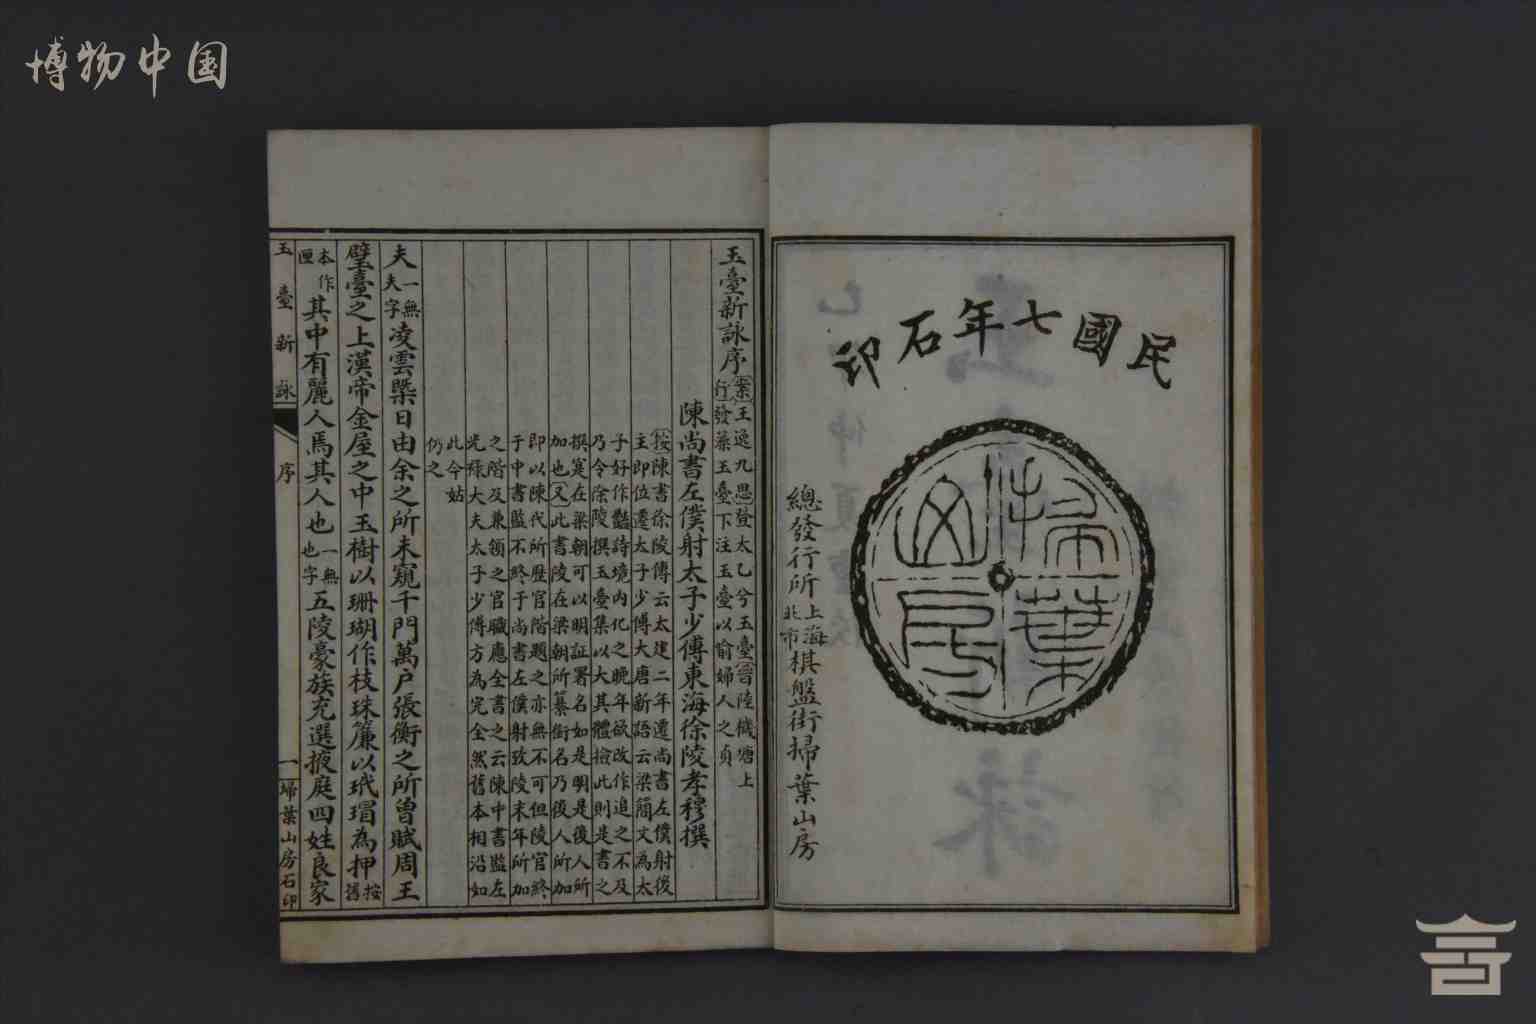 博物中国
民國七年石印
掃葉山房
總發行所上海北市棋盤街掃葉山房
玉臺新詠序案王逸九思登太乙兮玉臺晉陸機塘上
行發藻玉臺下注玉臺以喻婦人之貞
陳尚書左僕射太子少傅東海徐陵孝穆撰
按陳書徐陵傳云太建二年遷尚書左僕射後
主即位遷太子少傅大唐新語云梁簡文為太
子好作豔詩境內化之晚年欲改作追之不及
乃令徐陵撰玉臺集以大其體撿此則是書之
撰寔在梁朝可以明証署名如是明是後人所
加也又此書陵在梁朝所纂銜名乃後人所加
即以陳代所歷官階題之亦無不可但陵官終
于中書監不終于尚書左僕射攷陵末年所加
之階及兼領之官職應全書之云陳中書監左
光祿大夫太子少傅方為完全然舊本相沿如
此今姑
仍之
夫一無夫字凌雲槩日由余之所未窺千門萬戶張衡之所曾賦周王
璧臺之上漢帝金屋之中玉樹以珊瑚作枝珠簾以玳瑁為押按舊
本作匣其中有麗人焉其人也一無也字五陵豪族充選掖庭四姓良家
玉臺新詠 序 一 埽葉山房石印